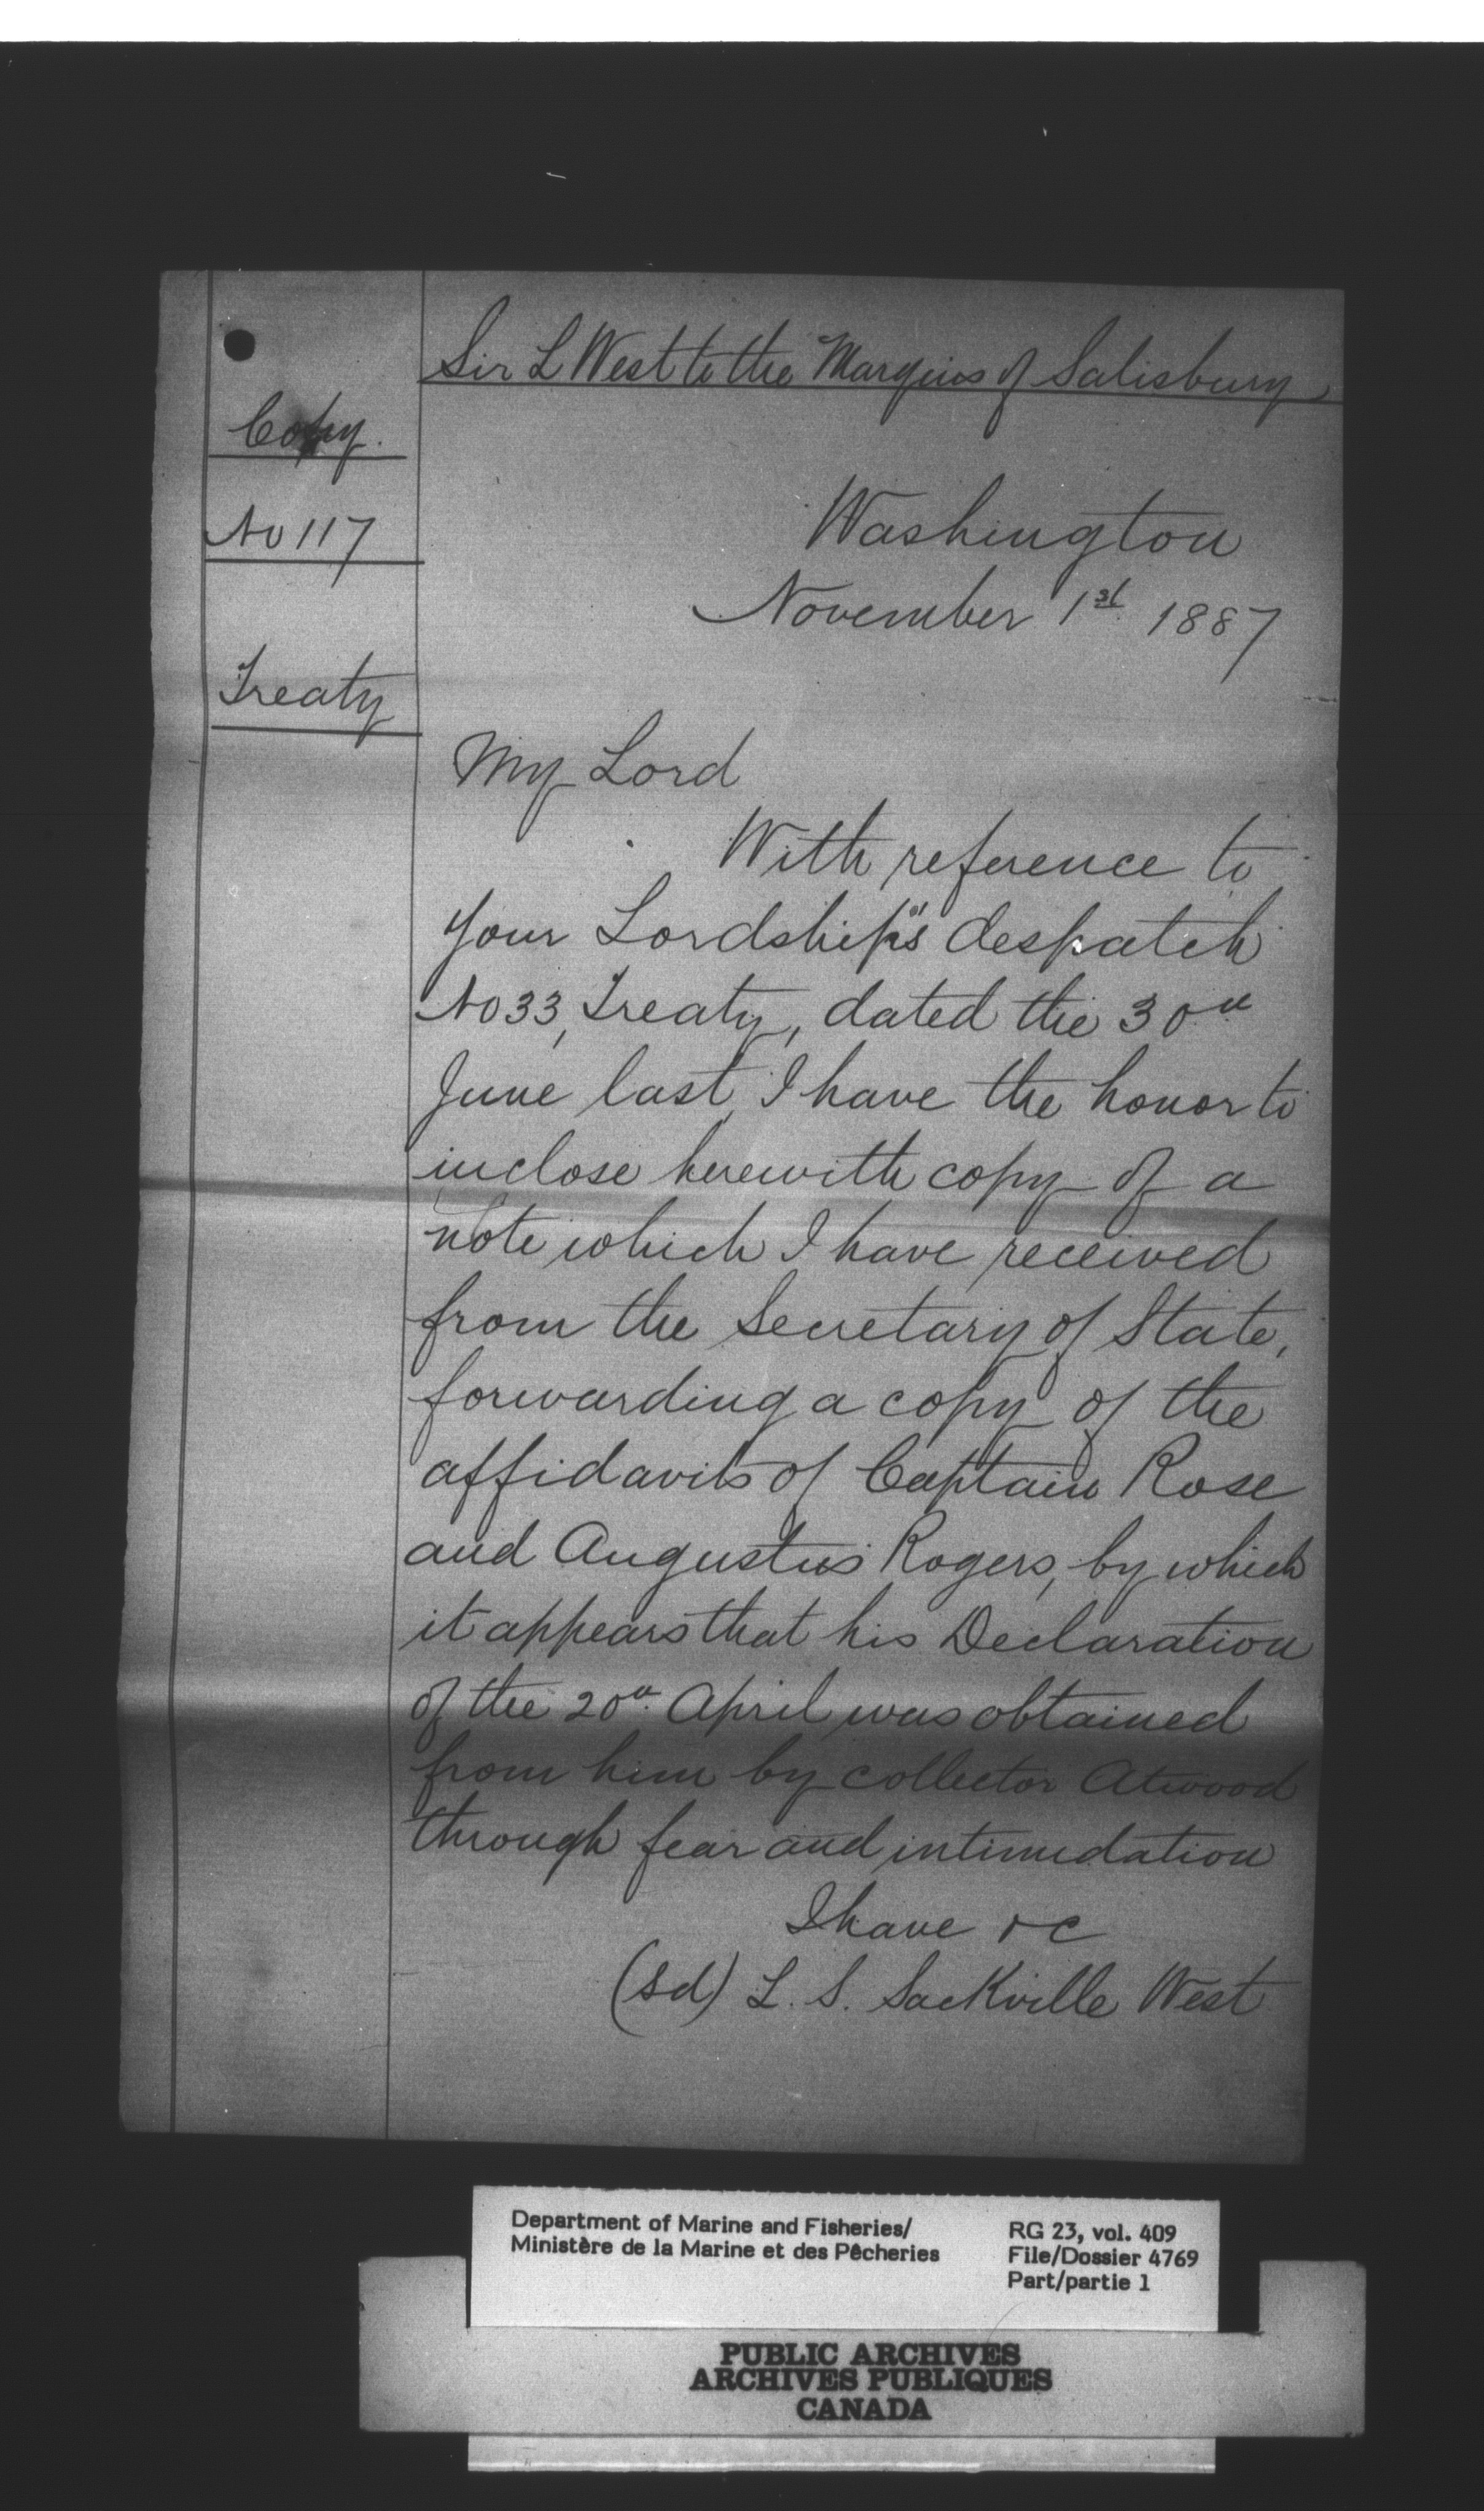 Sir L West to the Marquis of Salisbury
Copy.
No 117
Treaty
Washington
November 1st 1887
My Lord
With reference to
Your Lordship's despatch
No 33, Treaty, dated the 30th
June last, I have the honor to
inclose herewith copy of a
note which I have received
from the Secretary of State,
forwarding a copy of the
affidavits of Captain Rose
and Augustus Rogers, by which
it appears that his Declaration
of the 20th April was obtained
from him by collector Atwood
through fear and intimidation
I have &c
(sd) L. S. Sackville West
Department of Marine and Fisheries/
Ministère de la Marine et des Pêcheries
RG 23, vol. 409
File/Dossier 4769
Part/partie 1
PUBLIC ARCHIVES
ARCHIVES PUBLIQUES
CANADA